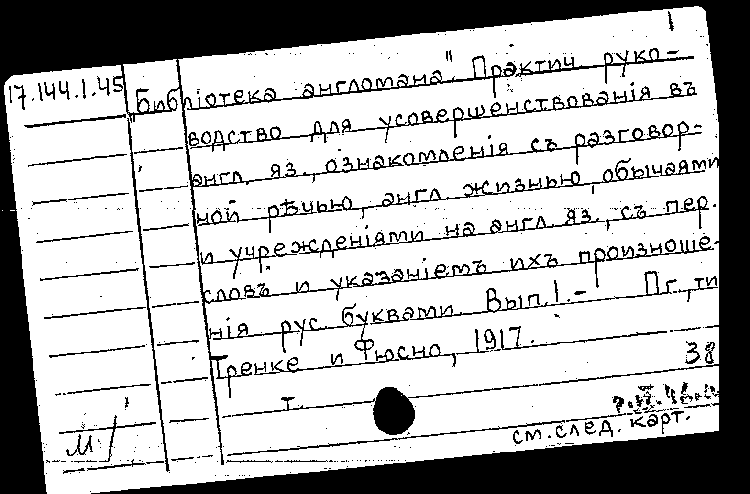 1
17.144.1.45
"Библіотека англомана". Практич. руко-
водство для усовершенствованія въ
англ. яз., ознакомленія съ разговор-
ной рѣчью, англ. жизнью, обычаями
и учрежденіями на англ. яз., съ пер.
словъ и указаніемъ ихъ произноше-
нія рус. буквами. Вып. 1.- Пг., тип
Тренке и Фюсно, 1917.
38
т.
М/
см. след. карт.